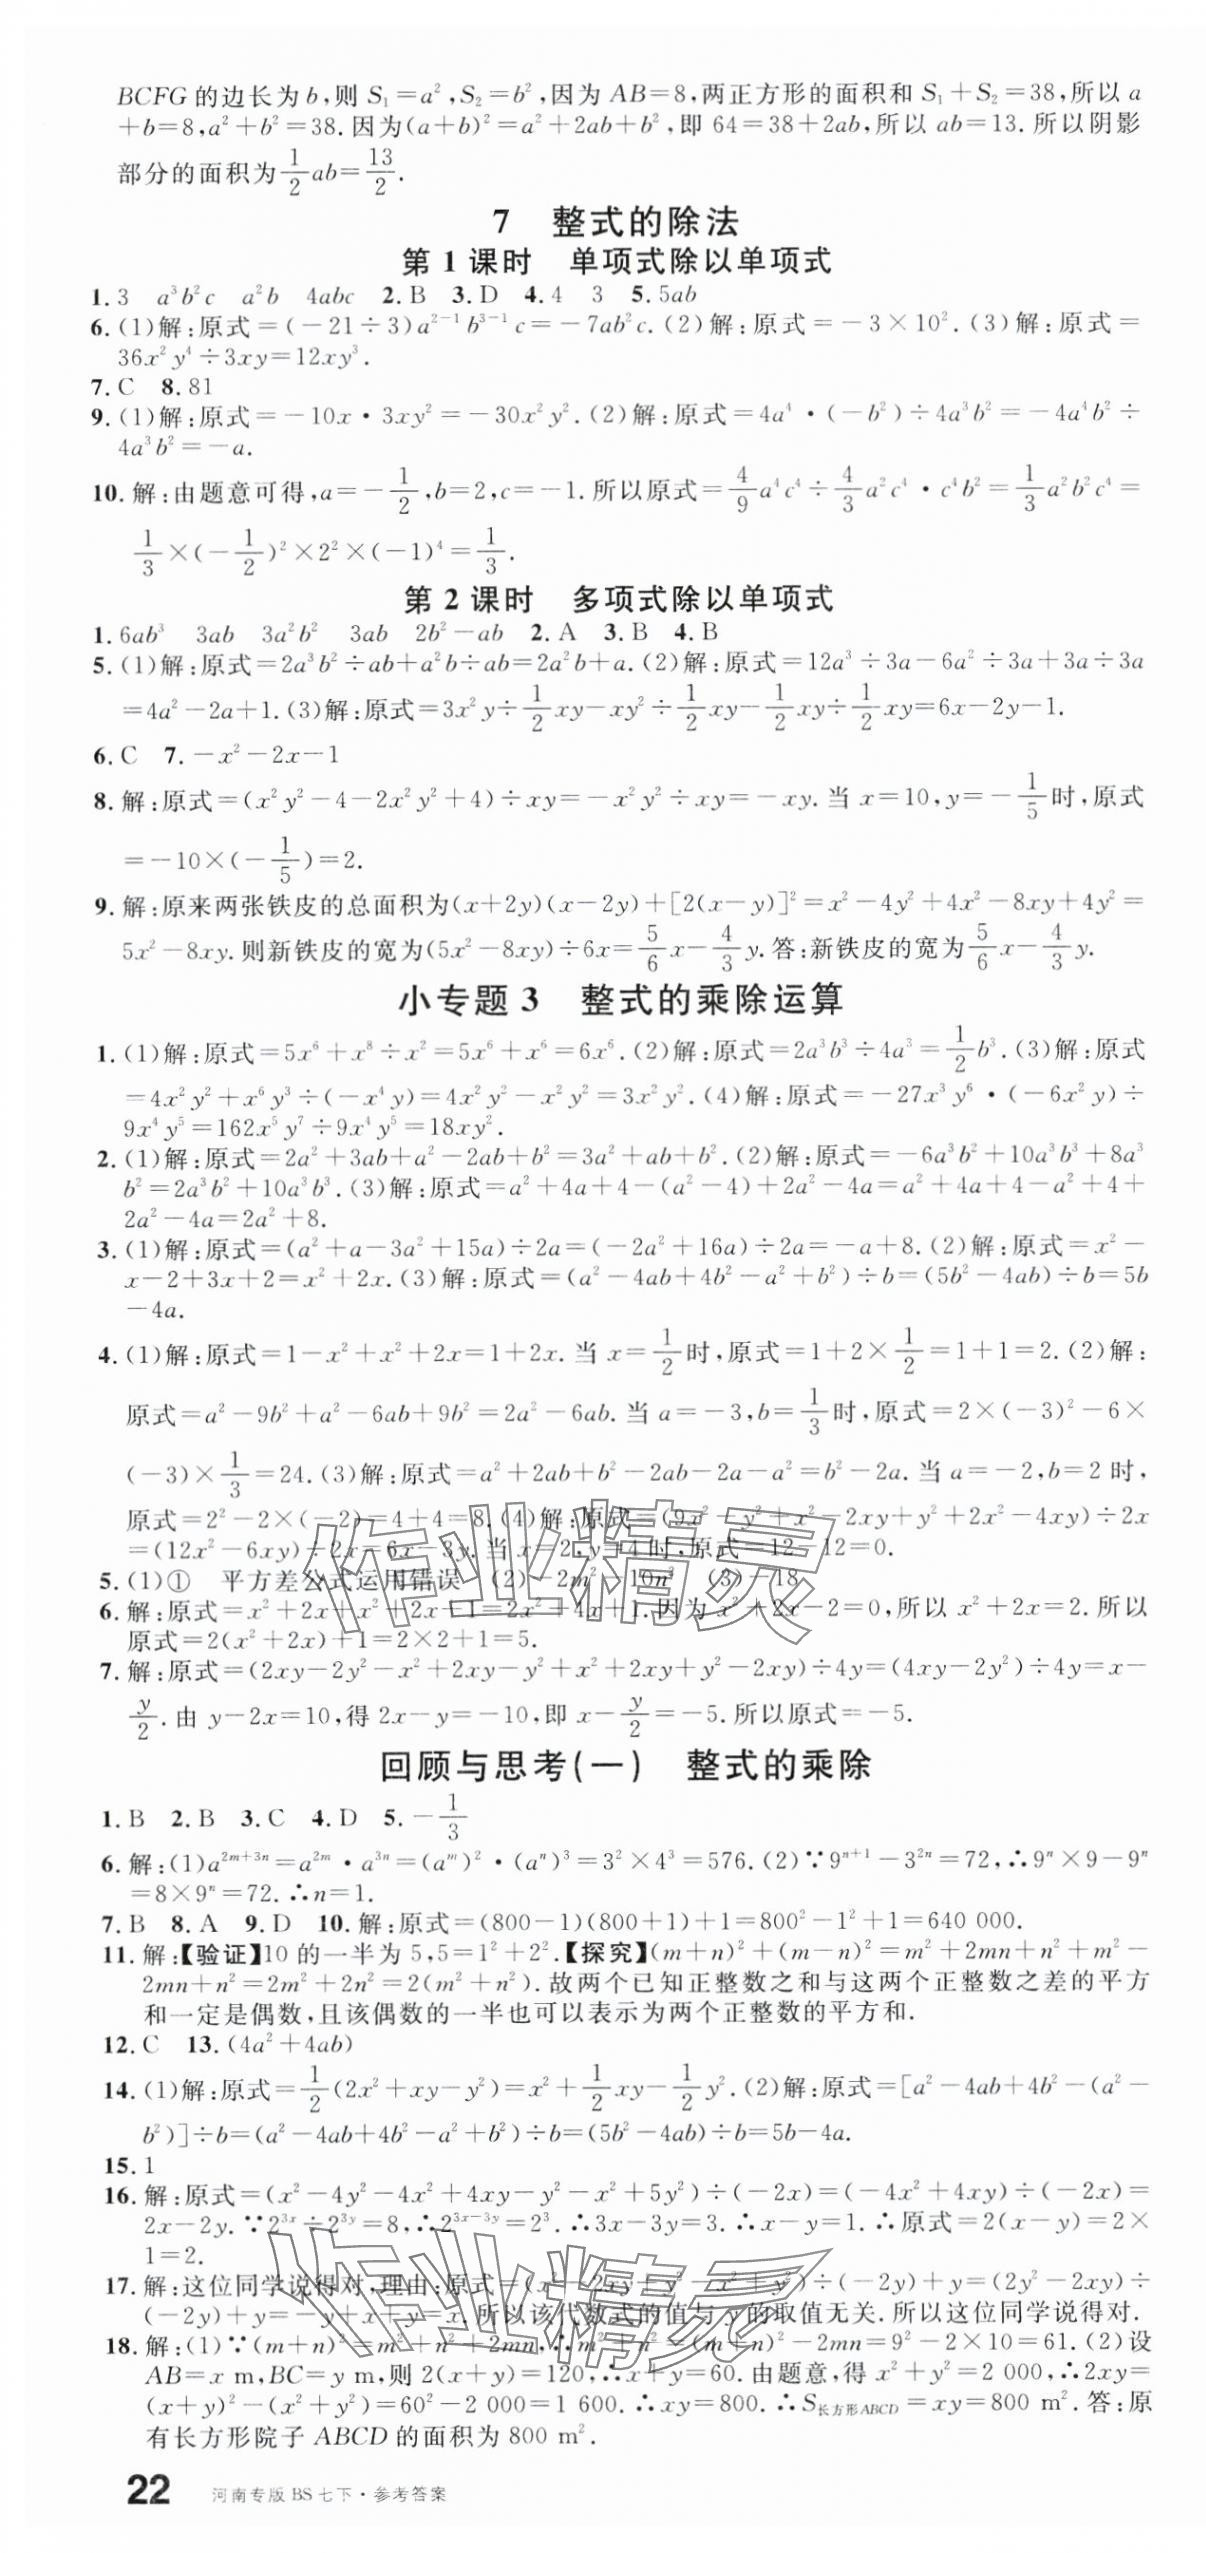 BCFG的边长为b,则S₁=a²,S₂=b²,因为AB=8,两正方形的面积和S₁+S₂=38,所以a
+b=8,a²+b²=38.因为(a+b)²=a²+2ab+b²,即64=38+2ab,所以ab=13.所以阴影
部分的面积为1/2ab=13/2.
7 整式的除法
第1课时 单项式除以单项式
1.3 a³b²c a²b 4abc 2.B 3.D 4.4 3 5.5ab
6.(1)解:原式=(-21÷3)a²⁻¹b³⁻¹c=-7ab²c.(2)解:原式=-3×10².(3)解:原式=
36x²y⁴÷3xy=12xy³.
7.C 8.81
9.(1)解:原式=-10x·3xy²=-30x²y².(2)解:原式=4a⁴·(-b²)÷4a³b²=-4a⁴b²÷
4a³b²=-a.
10.解:由题意可得,a=-1/2,b=2,c=-1.所以原式=4/9a⁴c⁴÷4/3a²c⁴·c⁴b²=1/3a²b²c⁴=
1/3×(-1/2)²×2²×(-1)⁴=1/3.
第2课时 多项式除以单项式
1.6ab³ 3ab 3a²b² 3ab 2b²-ab 2.A 3.B 4.B
5.(1)解:原式=2a³b²÷ab+a²b÷ab=2a²b+a.(2)解:原式=12a³÷3a-6a²÷3a+3a÷3a
=4a²-2a+1.(3)解:原式=3x²y÷1/2xy-xy²÷1/2xy-1/2xy÷1/2xy=6x-2y-1.
6.C 7.-x²-2x-1
8.解:原式=(x²y²-4-2x²y²+4)÷xy=-x²y²÷xy=-xy.当x=10,y=-1/5时,原式
=-10×(-1/5)=2.
9.解:原来两张铁皮的总面积为(x+2y)(x-2y)+[2(x-y)]²=x²-4y²+4x²-8xy+4y²=
5x²-8xy.则新铁皮的宽为(5x²-8xy)÷6x=5/6x-4/3y.答:新铁皮的宽为5/6x-4/3y.
小专题3 整式的乘除运算
1.(1)解:原式=5x⁶+x⁸÷x²=5x⁶+x⁶=6x⁶.(2)解:原式=2a³b³÷4a³=1/2b³.(3)解:原式
=4x²y²+x⁶y³÷(-x⁴y)=4x²y²-x²y²=3x²y².(4)解:原式=-27x³y⁶·(-6x²y)÷
9x⁴y⁵=162x⁵y⁷÷9x⁴y⁵=18xy².
2.(1)解:原式=2a²+3ab+a²-2ab+b²=3a²+ab+b².(2)解:原式=-6a³b²+10a³b³+8a³
b²=2a³b²+10a³b³.(3)解:原式=a²+4a+4-(a²-4)+2a²-4a=a²+4a+4-a²+4+
2a²-4a=2a²+8.
3.(1)解:原式=(a²+a-3a²+15a)÷2a=(-2a²+16a)÷2a=-a+8.(2)解:原式=x²-
x-2+3x+2=x²+2x.(3)解:原式=(a²-4ab+4b²-a²+b²)÷b=(5b²-4ab)÷b=5b
-4a.
4.(1)解:原式=1-x²+x²+2x=1+2x.当x=1/2时,原式=1+2×1/2=1+1=2.(2)解:
原式=a²-9b²+a²-6ab+9b²=2a²-6ab.当a=-3,b=1/3时,原式=2×(-3)²-6×
(-3)×1/3=24.(3)解:原式=a²+2ab+b²-2ab-2a-a²=b²-2a.当a=-2,b=2时,
原式=2²-2×(-2)=4+4=8.(4)解:原式=(9x²-y²+x²-2xy+y²+2x²-4xy)÷2x
=(12x²-6xy)÷2x=6x-3y.当x=2,y=4时,原式=12-12=0.
5.(1)① 平方差公式运用错误 (2)-2m²-10n² (3)-18
6.解:原式=x²+2x+x²+2x+1=2x²+4x+1.因为x²+2x-2=0,所以x²+2x=2.所以
原式=2(x²+2x)+1=2×2+1=5.
7.解:原式=(2xy-2y²-x²+2xy-y²+x²+2xy+y²-2xy)÷4y=(4xy-2y²)÷4y=x-
y/2.由y-2x=10,得2x-y=-10,即x-y/2=-5.所以原式=-5.
回顾与思考(一) 整式的乘除
1.B 2.B 3.C 4.D 5.-1/3
6.解:(1)a²ᵐ⁺³ⁿ=a²ᵐ·a³ⁿ=(aᵐ)²·(aⁿ)³=3²×4³=576.(2)∵9ⁿ⁺¹-3²ⁿ=72,∴9ⁿ×9-9ⁿ
=8×9ⁿ=72.∴n=1.
7.B 8.A 9.D 10.解:原式=(800-1)(800+1)+1=800²-1²+1=640 000.
11.解:【验证】10的一半为5,5=1²+2².【探究】(m+n)²+(m-n)²=m²+2mn+n²+m²-
2mn+n²=2m²+2n²=2(m²+n²).故两个已知正整数之和与这两个正整数之差的平方
和一定是偶数,且该偶数的一半也可以表示为两个正整数的平方和.
12.C 13.(4a²+4ab)
14.(1)解:原式=1/2(2x²+xy-y²)=x²+1/2xy-1/2y².(2)解:原式=[a²-4ab+4b²-(a²-
b²)]÷b=(a²-4ab+4b²-a²+b²)÷b=(5b²-4ab)÷b=5b-4a.
15.1
16.解:原式=(x²-4y²-4x²+4xy-y²-x²+5y²)÷(-2x)=(-4x²+4xy)÷(-2x)=
2x-2y.∵2³ˣ÷2³ʸ=8,∴2³ˣ⁻³ʸ=2³.∴3x-3y=3.∴x-y=1.∴原式=2(x-y)=2×
1=2.
17.解:这位同学说得对,理由:原式=(x²-2xy+y²-x²+y²)÷(-2y)+y=(2y²-2xy)÷
(-2y)+y=-y+x+y=x.所以该代数式的值与y的取值无关.所以这位同学说得对.
18.解:(1)∵(m+n)²=m²+n²+2mn,∴m²+n²=(m+n)²-2mn=9²-2×10=61.(2)设
AB=x m,BC=y m,则2(x+y)=120,∴x+y=60.由题意,得x²+y²=2 000,∴2xy=
(x+y)²-(x²+y²)=60²-2 000=1 600.∴xy=800.∴S长方形ABCD=xy=800 m².答:原
有长方形院子ABCD的面积为800 m².
22 河南专版 BS 七下·参考答案
作业精灵
作业精灵